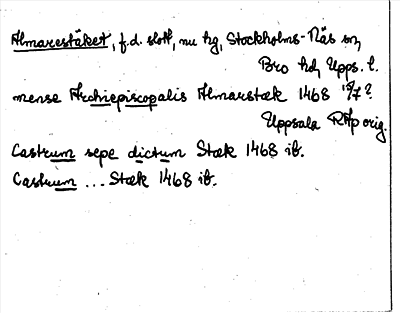 Almarestäket, f.d. slott, nu hg, Stockholms-Näs sn,
Bro hd, Upps. l.
mense Archiepiscopalis Almarstæk 1468 15/7?
Uppsala RAp orig.
Castrum sepe dictum Stæk 1468 ib.
Castrum ... Stæk 1468 ib.